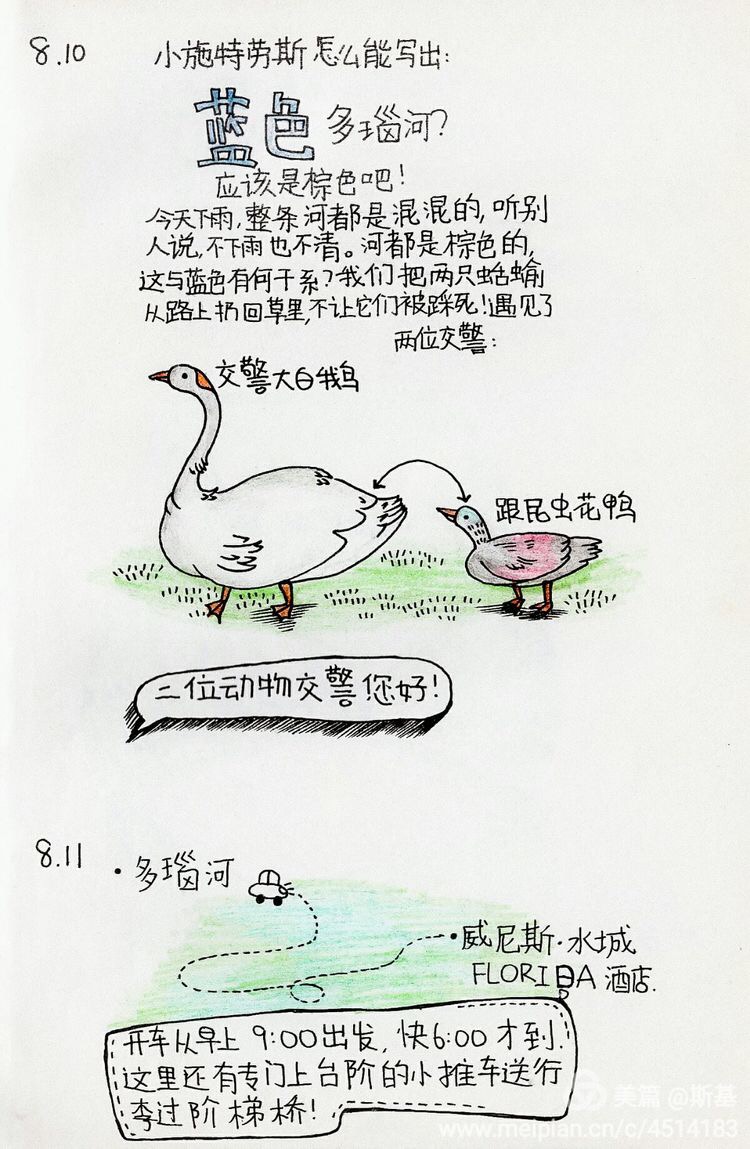 8.10
小施特劳斯怎么能写出:
蓝色多瑙河?
应该是棕色吧!
今天下雨,整条河都是混混的,听别
人说,不下雨也不清。河都是棕色的,
这与蓝色有何干系?我们把两只蛞蝓
从路上扔回草里,不让它们被踩死!遇见了
两位交警:
交警大白鹅
跟昆虫花鸭
二位动物交警您好!
8.11
·多瑙河
·威尼斯·水城
FLORIDA酒店.
开车从早上9:00出发,快6:00才到.
这里还有专门上台阶的小推车送行
李过阶梯桥!
美篇 @斯基
www.meipian.cn/c/4514183